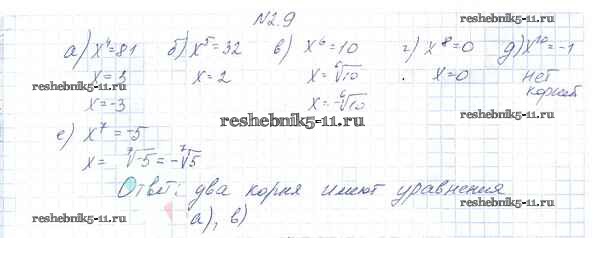 №2.9
а) x⁴=81 б) x⁵=32 в) x⁶=10 г) x⁸=0 д) x¹⁰=-1
x=3 x=2 x=⁶√10 x=0 нет
корней
x=-3 x=-⁶√10
е) x⁷=-5
x=⁷√-5=-⁷√5
Ответ: два корня имеют уравнения
а), в)
reshebnik5-11.ru
reshebnik5-11.ru
reshebnik5-11.ru
reshebnik5-11.ru
reshebnik5-11.ru
reshebnik5-11.ru
reshebnik5-11.ru